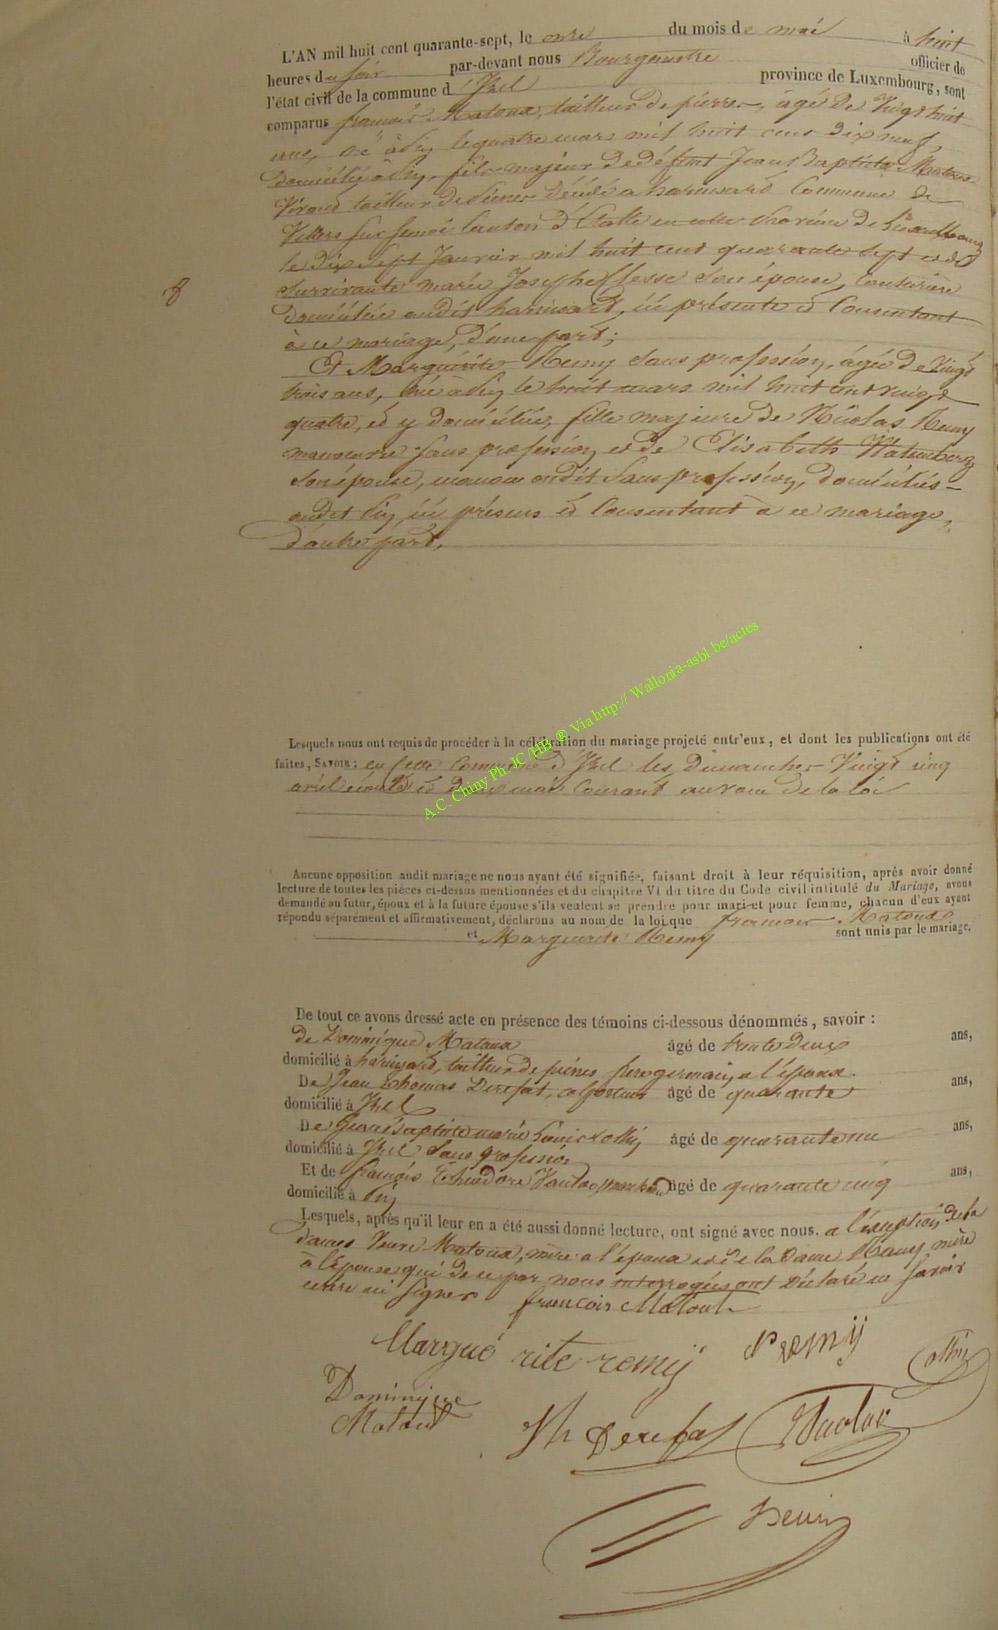 L'AN mil huit cent quarante-sept, le onze du mois de mai à huit
heures du soir par-devant nous Bourgmestre officier de
l'état civil de la commune d'Izel province de Luxembourg, sont
comparus françois Matoux, tailleur de pierres, âgé de Vingt huit
ans, né à le quatre mars mil huit cent dix neuf,
domicilié à fils majeur de défunt Jean Baptiste Matoux
tailleur de pierres décédé a harinsard Commune de
Villers sur semois Canton d'Etalle en cette Province de Luxembourg
le dix sept Janvier mil huit cent quarante sept et de
survivante marie Josephe son épouse, Couturière
domiciliée audit harinsard, ici présente et Consentant
à ce mariage, d'une part;
Et Marguerite Remy Sans profession, âgée de Vingt
trois ans, née a le huit mars mil huit cent vingt
quatre, et y domiciliée, fille majeure de Nicolas Remy
manoeuvre sans profession et de Elisabeth Watemberg
Son épouse, Sans profession, domiciliés
audit ici présens et Consentant à ce mariage,
d'autre part,
8
Lesquels nous ont requis de procéder à la célébration du mariage projeté entr'eux, et dont les publications ont été
faites, SAVOIR: en cette Commune d'Izel les dimanches Vingt cinq
avril et deux mai Courant au vœu de la loi
A.C. Chiny Ph. JC /HB. ® Via http:// Wallonia-asbl.be/actes
Aucune opposition audit mariage ne nous ayant été signifiée, faisant droit à leur réquisition, après avoir donné
lecture de toutes les pièces ci-dessus mentionnées et du chapitre VI du titre du Code civil intitulé du Mariage, avons
demandé au futur, époux et à la future épouse s'ils veulent se prendre pour mari et pour femme, chacun d'eux ayant
répondu séparément et affirmativement, déclarons au nom de la loi que françois Matoux
et Marguerite Remy sont unis par le mariage.
De tout ce avons dressé acte en présence des témoins ci-dessous dénommés, savoir :
de Dominique Matoux âgé de trente deux ans,
domicilié à harinsard, tailleur de pierres frere germain a l'époux.
De Jean Thomas Derefat, âgé de quarante ans,
domicilié à Izel
De marie âgé de quarante un ans,
domicilié à Izel Sans profession
Et de françois Théodore âgé de quarante cinq ans,
domicilié à
Lesquels, après qu'il leur en a été aussi donné lecture, ont signé avec nous. a l'exception de la
dames Veuve Matoux, mère a l'époux et de la Dame Remy mère
à l'épouse qui de ce par nous interrogées ont Déclaré ne savoir
écrire ni signer françois Matoul
Margué rite remij N remij
Dominique
Matoul
Th Derefat
Henin